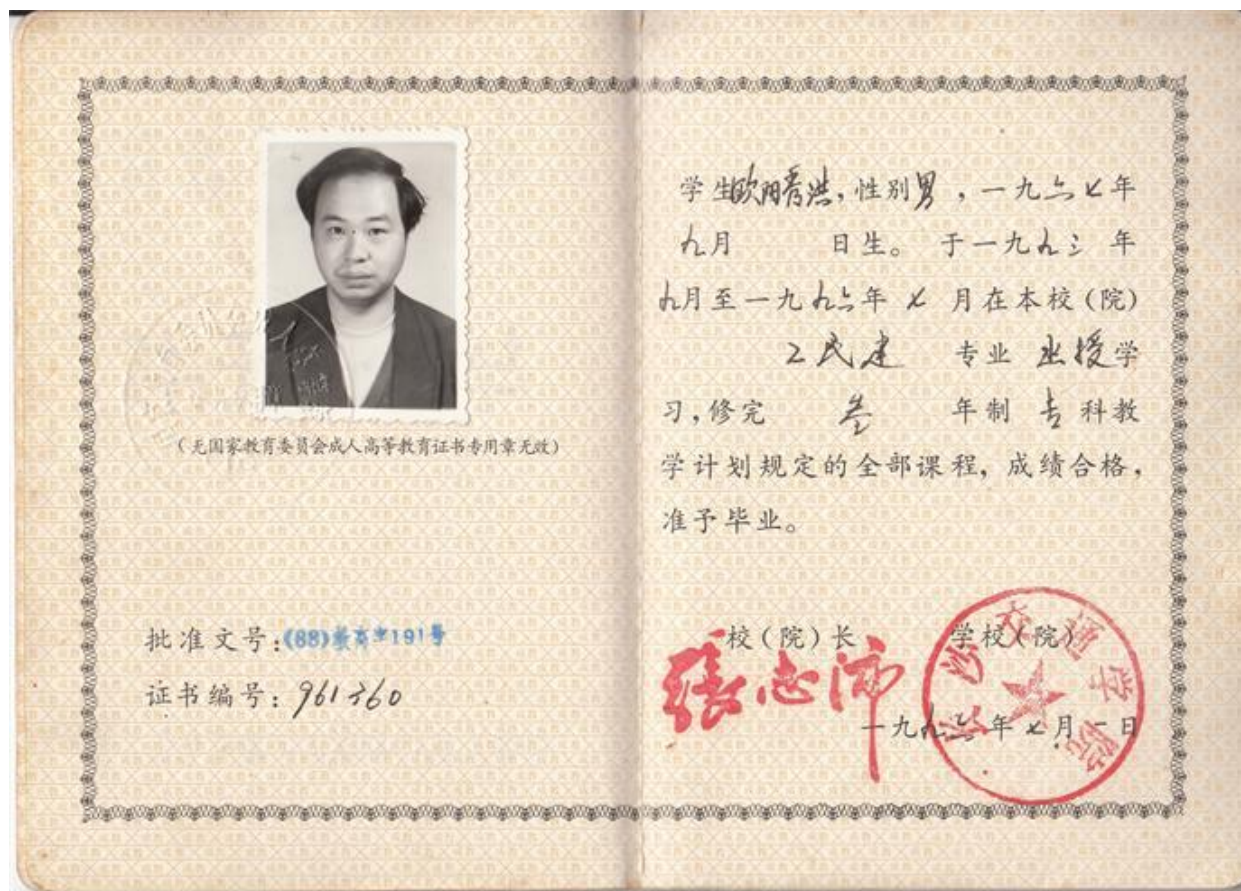 (无国家教育委员会成人高等教育证书专用章无效)
批准文号:(88)教高字191号
证书编号:961360
学生欧阳香洪,性别男,一九六七年
九月 日生。于一九九三年
九月至一九九六年七月在本校(院)
工民建 专业 函授学
习,修完 叁 年制 专科教
学计划规定的全部课程,成绩合格,
准予毕业。
校(院)长 学校(院)
张志沛
长沙交通学院
一九九六年七月一日